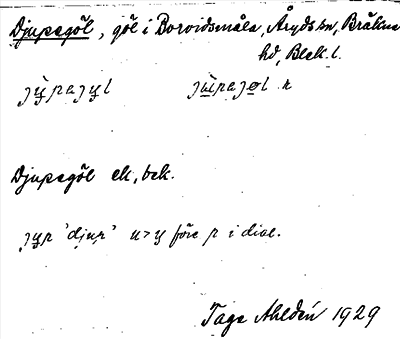 Djupagöl, göl i Boroidsmåla, Åryds sn, Bräkne
hd, Blek. l.
jỳpajyl jùpajøl k
Djupagöl ek, bek.
jyp 'djup' u>y före p i dial.
Tage Ahldén 1929